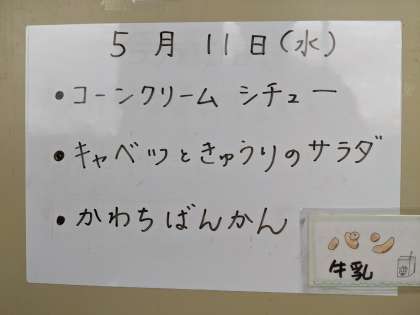 5月11日(水)
• コーンクリーム シチュー
• キャベツときゅうりのサラダ
• かわちばんかん
パン
牛乳